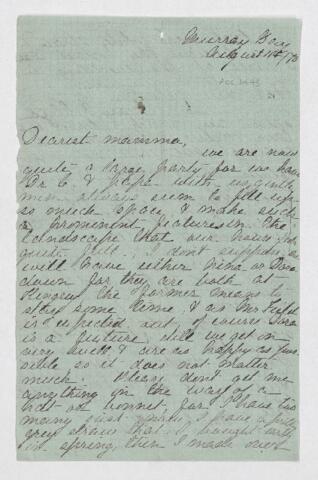 Murray Bay
August 1st/73
Dearest mamma,
we are now
quite a large party for we have
Dr C & papa with us gentle
men always seem to fill up
so much space & make such
a prominent feature in the
landscape that our house is
quite full I don't suppose we
will have either Nina or Dora
down for they are both at
the former means to
stay some time, & as Mr
is expected out of course Dora
is a fixture still we get on
very well & are as happy as poss
ible so it does not matter
much Please don't get me
anything in the way of a
hat or bonnet for I have too
many just now, I have a
grey straw that I bought early
in spring, then I made over